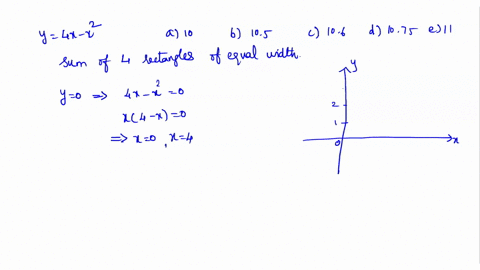 y = 4x - x²   a) 10   b) 10.5   c) 10.6   d) 10.75   e) 11
sum of 4 rectangles of equal width.
y=0 ⟹ 4x - x² = 0
x(4-x) = 0
⟹ x=0, x=4
y
2
1
0
x